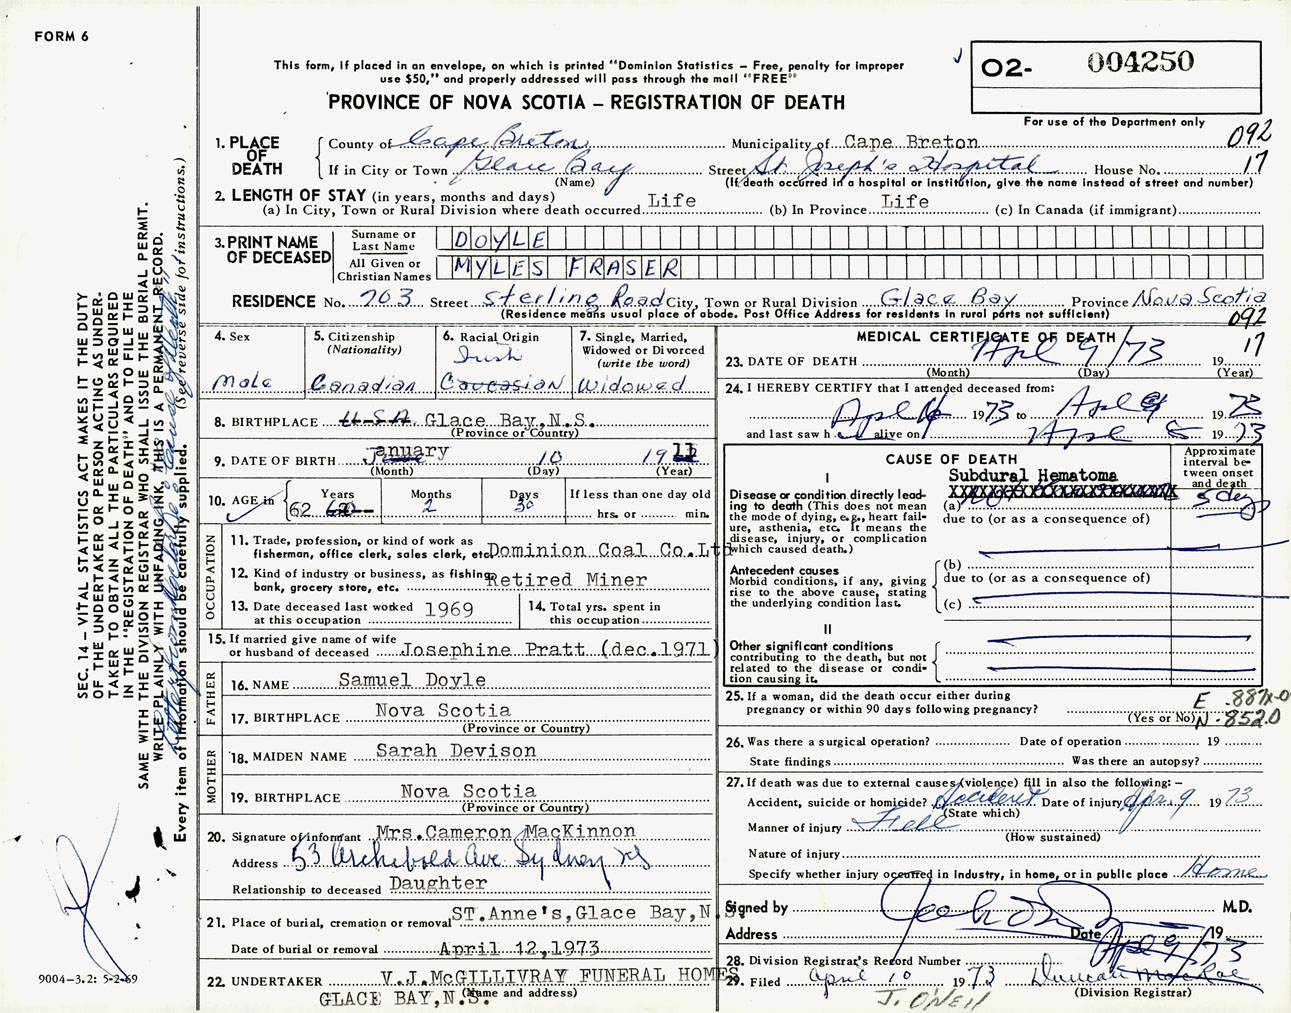 FORM 6
This form, if placed in an envelope, on which is printed "Dominion Statistics – Free, penalty for improper
use $50," and properly addressed will pass through the mail "FREE"
PROVINCE OF NOVA SCOTIA – REGISTRATION OF DEATH
O2- 004250
For use of the Department only
092
17
1. PLACE OF DEATH
County of Cape Breton Municipality of Cape Breton
If in City or Town Glace Bay Street St. Joseph's Hospital House No.
(Name) (If death occurred in a hospital or institution, give the name instead of street and number)
2. LENGTH OF STAY (in years, months and days)
(a) In City, Town or Rural Division where death occurred Life (b) In Province Life (c) In Canada (if immigrant)
3. PRINT NAME OF DECEASED
Surname or Last Name DOYLE
All Given or Christian Names MYLES FRASER
RESIDENCE No. 703 Street Sterling Road City, Town or Rural Division Glace Bay Province Nova Scotia
(Residence means usual place of abode. Post Office Address for residents in rural parts not sufficient)
092
17
4. Sex
Male
5. Citizenship
(Nationality)
Canadian
6. Racial Origin
Irish
Caucasian
7. Single, Married,
Widowed or Divorced
(write the word)
Widowed
8. BIRTHPLACE U.S.A. Glace Bay,N.S.
(Province or Country)
9. DATE OF BIRTH January 10 19 11
(Month) (Day) (Year)
10. AGE in
Years Months Days If less than one day old
62 2 30 hrs. or min.
OCCUPATION
11. Trade, profession, or kind of work as
fisherman, office clerk, sales clerk, etc. Dominion Coal Co.Ltd
12. Kind of industry or business, as fishing,
bank, grocery store, etc. Retired Miner
13. Date deceased last worked
at this occupation 1969
14. Total yrs. spent in
this occupation
15. If married give name of wife
or husband of deceased Josephine Pratt (dec.1971)
FATHER
16. NAME Samuel Doyle
17. BIRTHPLACE Nova Scotia
(Province or Country)
MOTHER
18. MAIDEN NAME Sarah Devison
19. BIRTHPLACE Nova Scotia
(Province or Country)
20. Signature of informant Mrs.Cameron MacKinnon
Address 53 Archibald Ave Sydney NS
Relationship to deceased Daughter
21. Place of burial, cremation or removal ST.Anne's,Glace Bay,N.S.
Date of burial or removal April 12,1973
22. UNDERTAKER V.J.McGILLIVRAY FUNERAL HOMES
GLACE BAY,N.S. (Name and address)
MEDICAL CERTIFICATE OF DEATH
23. DATE OF DEATH Apl 9/73 19
(Month) (Day) (Year)
24. I HEREBY CERTIFY that I attended deceased from:
Apl 1973 to Apl 1973
and last saw h alive on Apl 8 1973
CAUSE OF DEATH
Approximate
interval be-
tween onset
and death
I
Subdural Hematoma
Disease or condition directly lead-
ing to death (This does not mean
the mode of dying, e.g., heart fail-
ure, asthenia, etc. It means the
disease, injury, or complication
which caused death.)
(a) 5 days
due to (or as a consequence of)
Antecedent causes
Morbid conditions, if any, giving
rise to the above cause, stating
the underlying condition last.
(b)
due to (or as a consequence of)
(c)
II
Other significant conditions
contributing to the death, but not
related to the disease or condi-
tion causing it.
25. If a woman, did the death occur either during
pregnancy or within 90 days following pregnancy?
(Yes or No)
E .887X-0
N-852.0
26. Was there a surgical operation? Date of operation 19
State findings Was there an autopsy?
27. If death was due to external causes (violence) fill in also the following: –
Accident, suicide or homicide? Accident Date of injury Apr. 9 1973
(State which)
Manner of injury Fell
(How sustained)
Nature of injury
Specify whether injury occurred in Industry, in home, or in public place Home
Signed by M.D.
Address Date Apl 9/73 19
28. Division Registrar's Record Number
29. Filed April 10 1973 Duncan MacRae
(Division Registrar)
J. O'NEIL
SEC. 14 – VITAL STATISTICS ACT MAKES IT THE DUTY
OF THE UNDERTAKER OR PERSON ACTING AS UNDER-
TAKER TO OBTAIN ALL THE PARTICULARS REQUIRED
IN THE "REGISTRATION OF DEATH" AND TO FILE THE
SAME WITH THE DIVISION REGISTRAR WHO SHALL ISSUE THE BURIAL PERMIT.
WRITE PLAINLY WITH UNFADING INK, THIS IS A PERMANENT RECORD.
Every item of information should be carefully supplied. (See reverse side for instructions.)
9004-3.2: 5-2-69